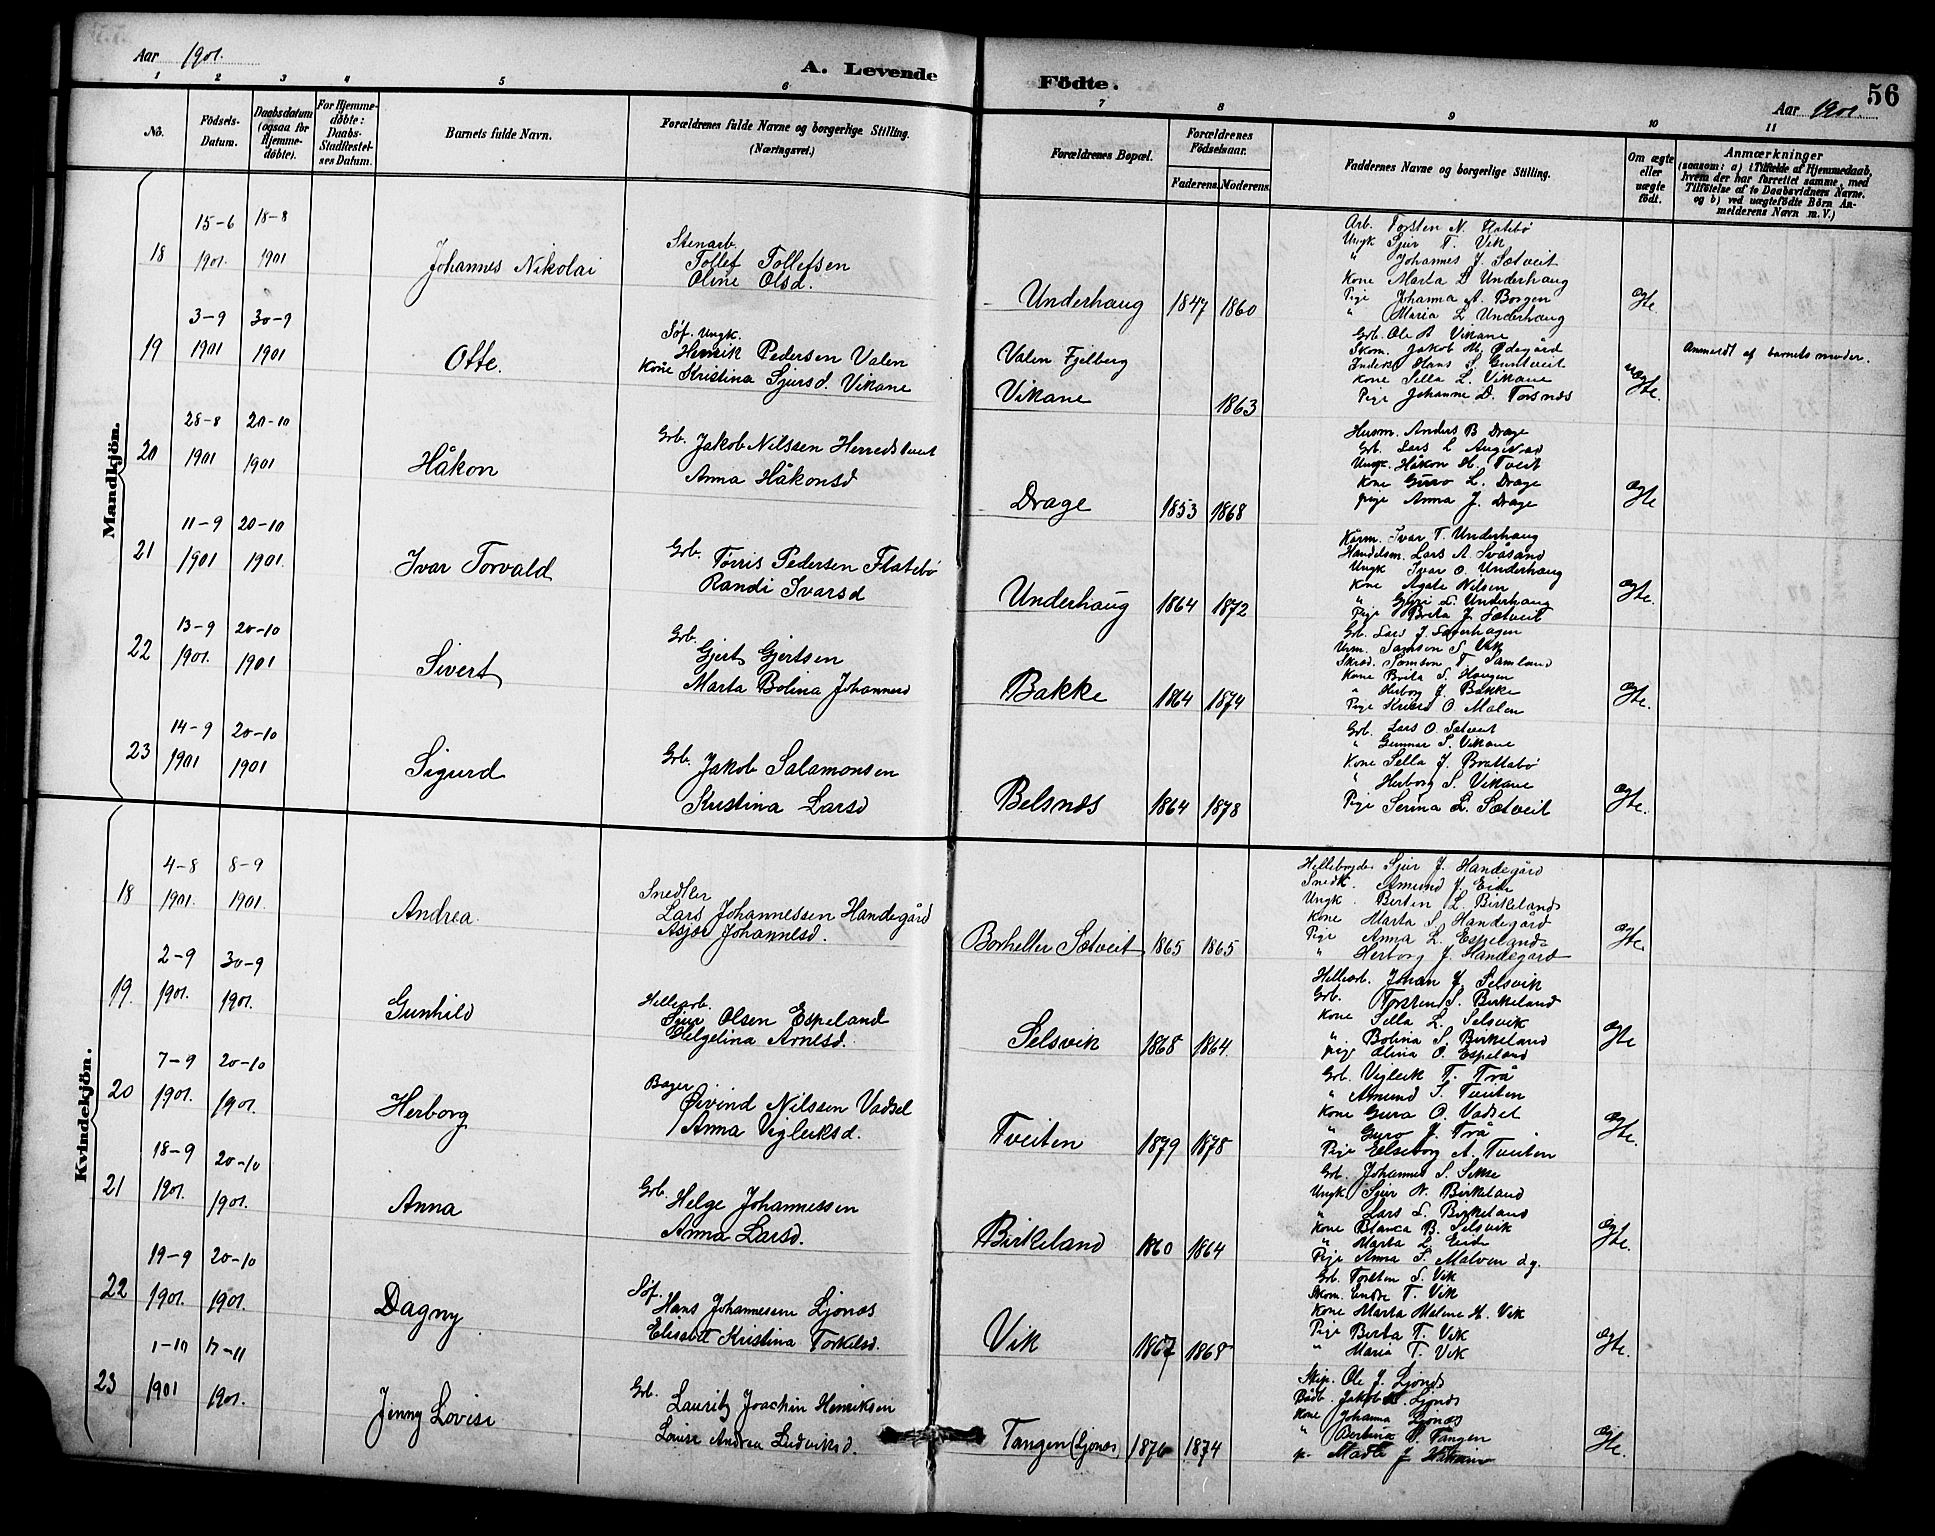 Aar 1901.
A. Levende Födte.
Aar 1901.
56
1 2 3 4 5 6 7 8 9 10 11
No.
Födsels-Datum.
Daabsdatum (ogsaa for Hjemme-döbte).
For Hjemme-döbte: Daabs-Stadfæstel-ses Datum.
Barnets fulde Navn.
Forældrenes fulde Navne og borgerlige Stilling. (Næringsvei.)
Forældrenes Bopæl.
Forældrenes Födselsaar.
Faderens. Moderens.
Faddernes Navne og borgerlige Stilling.
Om ægte eller uægte födt.
Anmærkninger
(saasom: a) i Tilfælde af Hjemmedaab, hvem der har forrettet samme, med Tilföielse af to Daabsvidners Navne. og b) ved uægtefödte Börn An-melderens Navn m. V.)
Mandkjön.
18
15-6 1901.
18-8 1901
Johannes Nikolai
Stenarb.
Tollef Tollefsen
Oline Olsd.
Underhaug 1847 1860
Arb. Torsten N. Flatebö
Ungk Sjur T. Vik
" Johannes J. Sætveit
Kone Marta D Underhaug
Pige Johanna A. Borgen
" Maria L Underhaug
Ægte.
19
3-9 1901
30-9 1901
Otte.
Søf. Ungk.
Henrik Pedersen Valen
Kone Kristina Sjursd. Vikane
Valen Fjelberg
Vikane 1863
Grb. Ole A Vikane
Skom. Jakob M. Ødegård
Hans S. Guntveit
Kone Sella L. Vikane
Pige Johanne D. Torsnæs
uægte.
Anmeldt af barnets moder.
20
28-8 1901
20-10 1901
Håkon
Grb. Jakob Nilssen Herredstveit
Anna Håkonsd
Drage 1853 1868
Husm. Anders B Drage
Grb. Lars L
Ungk. Håkon H. Tveit
Kone Guro L. Drage
pige Anna J. Drage
Ægte
21
11-9 1901
20-10 1901.
Ivar Torvald
Grb. Tørris Pedersen Flatebø
Randi Ivarsd
Underhaug 1864 1872
Kårm. Ivar T. Underhaug
Handelsm. Lars A. Svåsand
Ungk Ivar O. Underhaug
Kone Agate Nilsen
" Guri L. Underhaug
Pige Brita J Sætveit
Ægte.
22
13-9 1901.
20-10 1901
Sivert
Grb.
Gjert Gjertsen
Marta Bolina Johannesd
Bakke 1864 1874
Grb. Lars J.
Samson S. Vik
Skræd. Samson T. Samland
Kone Brita S. Haugen
" Herborg J. Bakke
Pige O Malen
Ægte.
23
14-9 1901
20-10 1901
Sigurd
Grb. Jakob Salamonsen
Kristina Larsd
Belsnæs 1864 1878
Grb. Lars O. Sætveit
" Gunnar S. Vikane
Kone Sella J. Brattabö
" Herborg S. Vikane
Pige Serina L. Sætveit
Ægte.
Kvindekjön.
18
4-8 1901.
8-9 1901.
Andrea.
Snedker
Lars Johannessen Handegård
Johannesd.
Borheller Sætveit 1865 1865
Sjur J. Handegård
Snedk. Amund J. Eide
Ungk. Berten L. Birkeland
Kone Marta S. Handegård
Pige Anna L. Espeland
" Herborg J. Handegård
Ægte.
19.
2-9 1901.
30-9 1901.
Gunhild
Hellearb.
Sjur Olsen Espeland
Helgelina Arnesd.
Selsvik 1868 1864
Hellearb. Johan J. Selsvik
Grb. Torsten S. Birkeland
Kone Sella L. Selsvik
" Bolina S. Birkeland
pige Olina O. Espeland
Ægte
20
7-9 1901.
20-10 1901.
Herborg
Bager
Øivind Nilssen Vadsel
Anna Vigleiksd.
Tveiten 1879 1878
Grb. Vigleik T. Trå
" Amund S. Tveiten
Kone Guro O. Vadset
" Guro J. Trå
Pige Elseborg A. Tveiten
Ægte.
21
18-9 1901.
20-10 1901.
Anna
Grb. Helge Johannessen
Anna Larsd.
Birkeland 1860 1864
Grb. Johannes S.
Ungk Sjur N. Birkeland
" Lars L. Birkeland
Kone Blanca B. Selsvik
" Marta L. Eide
Pige Anna S.
Ægte.
22
19-9 1901.
20-10 1901.
Dagny
Søf.
Hans Johannessen Ljonæs
Elisabet Kristina Torkilsd.
Vik 1867 1868
Grb. Torsten S. Vik
Skom. Endre T. Vik
Kone Marta Malene H. Vik
Pige Berta T. Vik
" Maria T. Vik
Ægte.
23
1-10 1901
17-11 1901.
Jenny Lovise
Grb. Lauritz Joachin Henriksen
Louise Andrea Ludviksd.
Tangen (Ljonæs) 1876 1874
Skip. Ole J. Ljonæs
Jakob Ljonæs
Kone Johanna Ljonæs
" Tangen
p. J
Ægte.